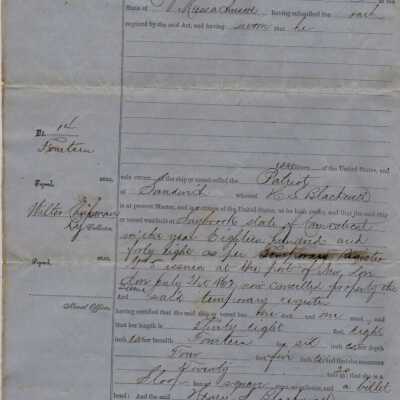 State of Massachusetts having subscribed the oath
required by the said Act, and having sworn that he
No. 14
Fourteen
of the United States, and
sole owner of the ship or vessel called the Patriot
of Sandwich whereof H. S. Blackwell
is at present Master, and is a citizen of the United States, as he hath sworn; and that the said ship
or vessel was built at Saybrook state of Connecticut
in the year Eighteen hundred and
forty eight as per Temporary register
issued at the port of New Lon
don July 21st now cancelled property the
same
And said temporary register
having certified that the said ship or vessel has one deck and one mast and
that her length is thirty eight feet, eight
inches her breadth Fourteen feet six inches her depth
Four feet five inches and that she measures
tons; that she is a
Sloop has a square and a billet
head: And the said Henry S. Blackwell
Signed,
William
Dy Collector.
Signed,
Naval Officer.